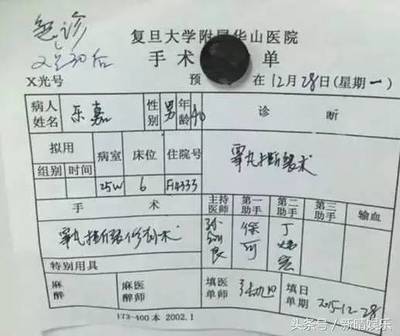 急诊
复旦大学附属华山医院
手术 单
X光号 预 在12月28日(星期一)
病人姓名 乐嘉 性别 男 年龄 40 诊断
拟用 病室 床位 住院号
组别 时间 25W 6
睾丸扭断裂术
手术 主持医师 第一助手 第二助手 第三助手 输血
睾丸扭断裂修补术
特别用具
麻醉 麻醉师 填单医师 填单日期 2015-12-28
173-400本 2002.1
头条号 / 新晴娱乐